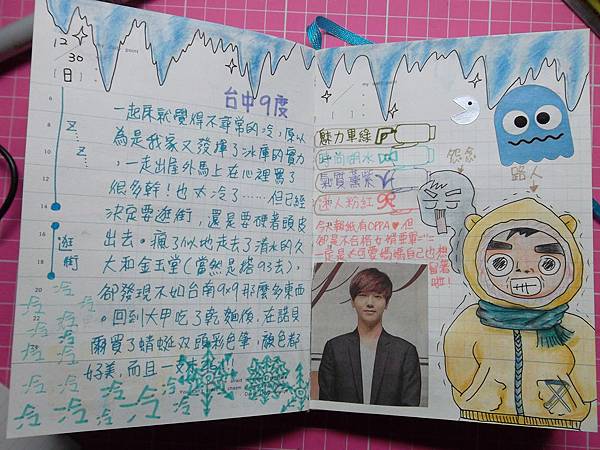 12/30
[日]
台中9度
一起床就覺得不尋常的冷，原以
為是我家又發揮了冰庫的實力
，一走出屋外馬上在心裡罵了
很多幹！也太冷了……但已經
決定要逛街，還是要硬著頭皮
出去。瘋了似地走去了清水的久
大和金玉堂（當然是搭93去），
卻發現不如台南9x9那麼多東西
。回到大甲吃了乾麵後，在諾貝
爾買了蜻蜓双頭彩色筆，顏色都
好美，而且一支才
6
8
14
16
18
20
22
z
z
z
逛街
冷
冷
冷
冷
冷
冷
冷
冷
冷
冷
冷
冷
魅力果綠
時尚湖水
氣質薰紫
迷人粉紅
今天報紙有OPPA♥但
卻是不合格女婿亞軍
一定是太可愛媽媽自己也想
留著啦！
怨念
路人